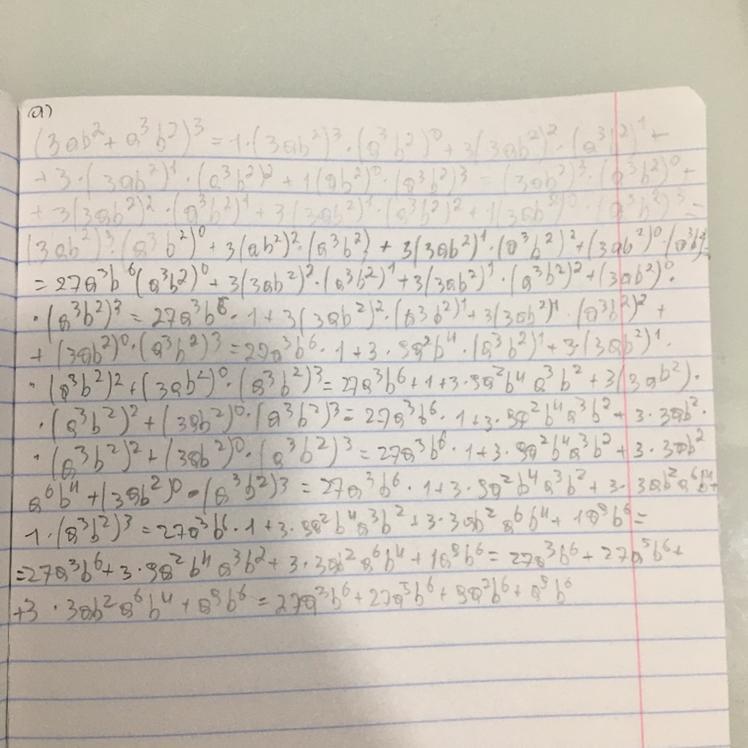 a)
(3ab²+a³b²)³=1·(3ab²)³·(a³b²)⁰+3(3ab²)²·(a³b²)¹+
+3·(3ab²)¹·(a³b²)²+1(ab²)⁰·(a³b²)³=(3ab²)³·(a³b²)⁰+
+3(3ab²)²·(a³b²)¹+3(3ab²)¹·(a³b²)²+1(3ab²)⁰·(a³b²)³=
(3ab²)³·(a³b²)⁰+3(ab²)²·(a³b²)+3(3ab²)¹·(a³b²)²+(3ab²)⁰·(a³b²)³
=27a³b⁶(a³b²)⁰+3(3ab²)²·(a³b²)¹+3(3ab²)¹·(a³b²)²+(3ab²)⁰·
·(a³b²)³=27a³b⁶·1+3(3ab²)²·(a³b²)¹+3(3ab²)¹·(a³b²)²+
+(3ab²)⁰·(a³b²)³=27a³b⁶·1+3·9a²b⁴·(a³b²)¹+3·(3ab²)¹·
·(a³b²)²+(3ab²)⁰·(a³b²)³=27a³b⁶+1+3·9a²b⁴a³b²+3(3ab²)·
·(a³b²)²+(3ab²)⁰·(a³b²)³=27a³b⁶·1+3·9a²b⁴a³b²+3·3ab²·
·(a³b²)²+(3ab²)⁰·(a³b²)³=27a³b⁶·1+3·9a²b⁴a³b²+3·3ab²
a⁶b⁴+(3ab²)⁰·(a³b²)³=27a³b⁶·1+3·9a²b⁴a³b²+3·3ab²a⁶b⁴+
1·(a³b²)³=27a³b⁶·1+3·9a²b⁴a³b²+3·3ab²a⁶b⁴+1a⁹b⁶=
=27a³b⁶+3·9a²b⁴a³b²+3·3ab²a⁶b⁴+1a⁹b⁶=27a³b⁶+27a⁵b⁶+
+3·3ab²a⁶b⁴+a⁹b⁶=27a³b⁶+27a⁵b⁶+9a⁷b⁶+a⁹b⁶